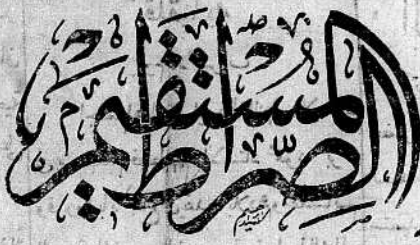 الصِّراط المستقيم